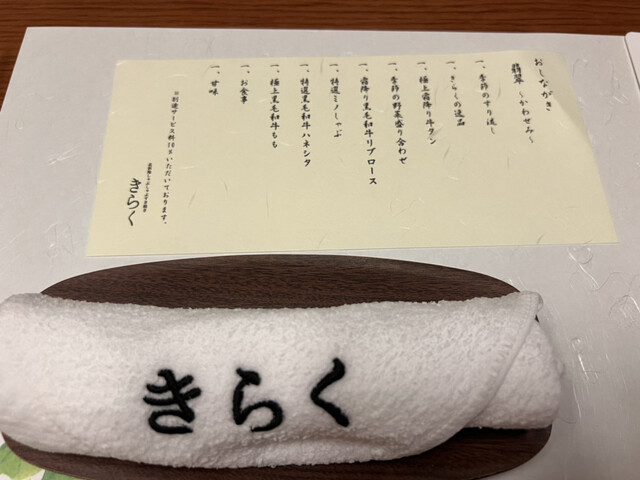 おしながき
翡翠 ～かわせみ～
一、季節のすり流し
一、きらくの逸品
一、極上霜降り牛タン
一、季節の野菜盛り合わせ
一、霜降り黒毛和牛リブロース
一、特選ミノしゃぶ
一、特選黒毛和牛ハネシタ
一、極上黒毛和牛もも
一、お食事
一、甘味
※別途サービス料10%いただいております。
きらく
きらく